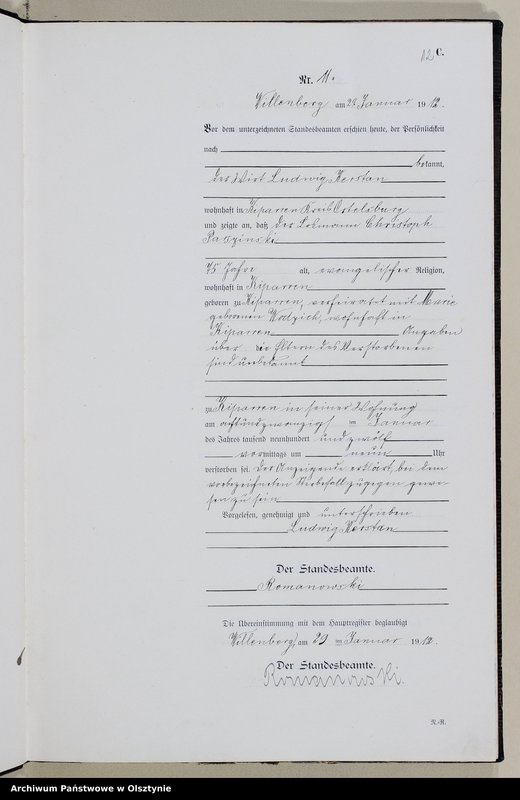 12 C.
Nr. 11.
Willenberg am 29 Januar 1912.
Vor dem unterzeichneten Standesbeamten erschien heute, der Persönlichkeit
nach
bekannt,
der Wirt Ludwig Kerstan
wohnhaft in Kiparren Kreis Ortelsburg
und zeigte an, daß der Losmann Christoph
75 Jahre alt, evangelischer Religion,
wohnhaft in Kiparren
geboren zu Kiparren, verheiratet mit Marie
geborenen wohnhaft in
Kiparren Angaben
über die Eltern des Verstorbenen
sind unbekannt
zu Kiparren in seiner Wohnung
am achtundzwanzigs im Januar
des Jahres tausend neunhundert und zwölf
vormittags um neun Uhr
verstorben sei. Der Anzeigende erklärt, bei dem
vorbezeichneten Sterbefall zugegen gewe-
sen zu sein
Vorgelesen, genehmigt und unterschrieben
Ludwig Kerstan
Der Standesbeamte.
Romanowski
Die Übereinstimmung mit dem Hauptregister beglaubigt
Willenberg, am 29 im Januar 1912.
Der Standesbeamte.
Romanowski.
N.-R.
Archiwum Państwowe w Olsztynie